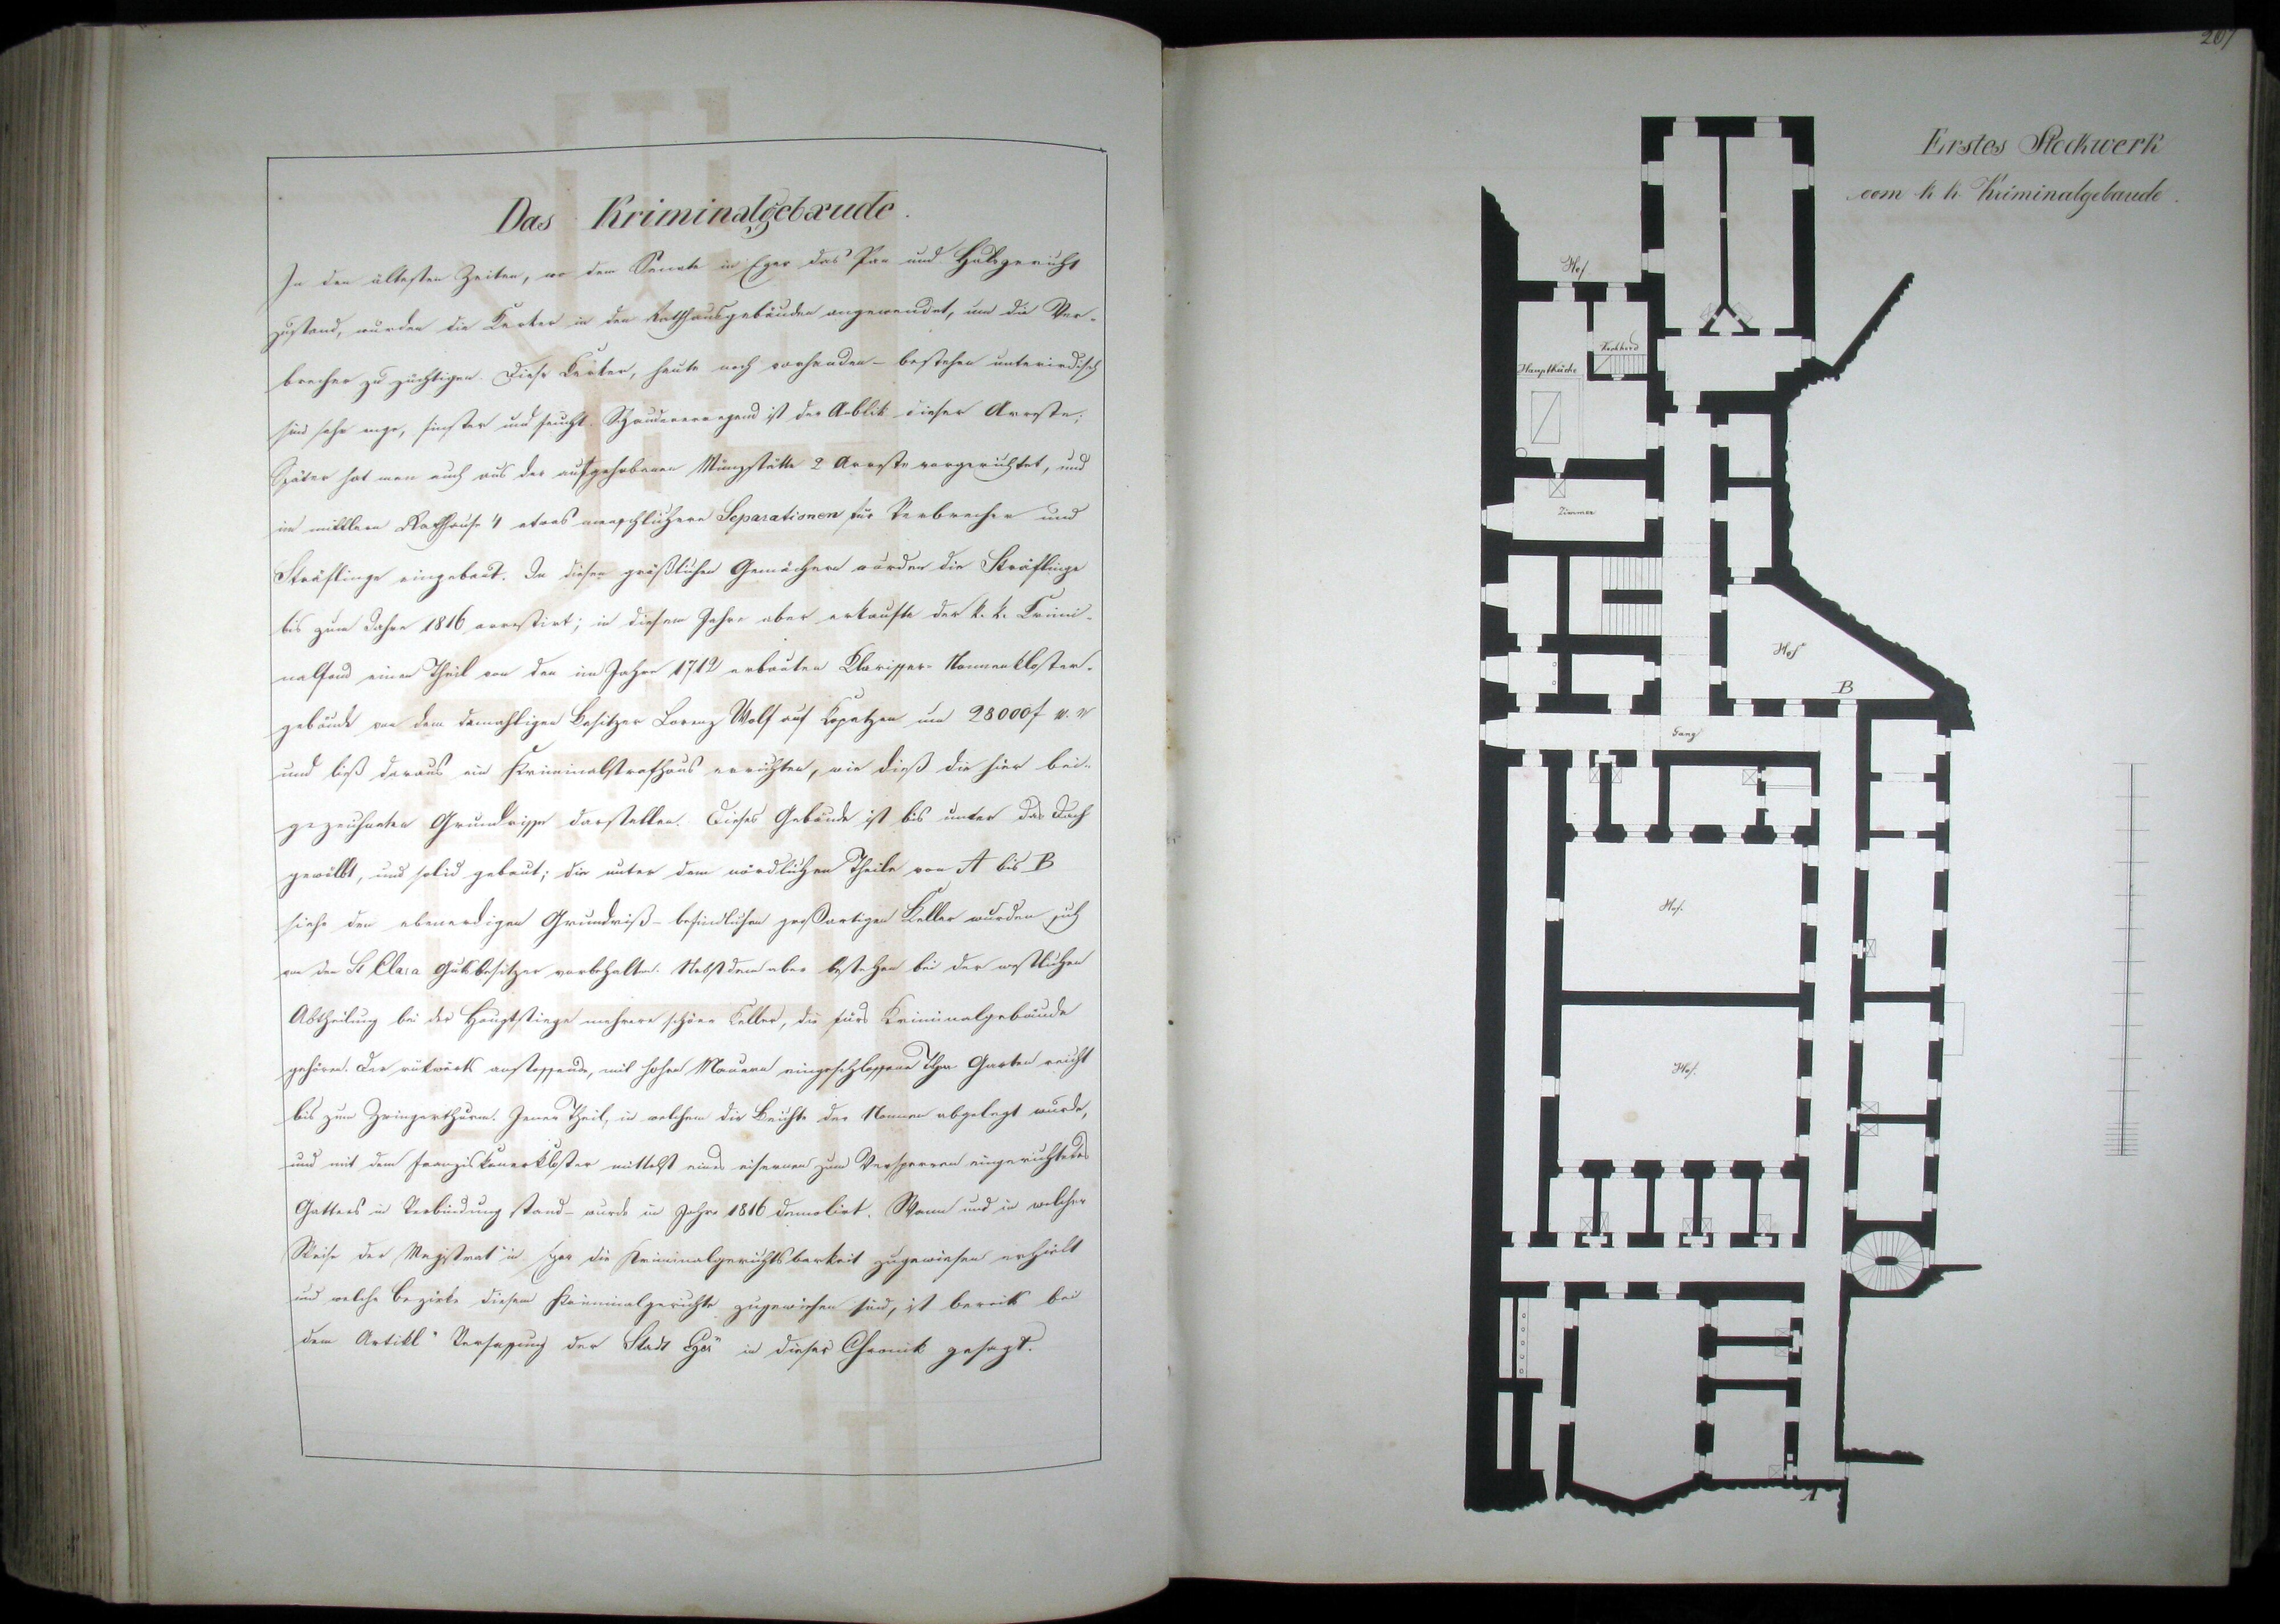 Das Kriminalgebæude.
In den ältesten Zeiten, wo dem Senate in Eger das und Halsgericht
zustand, wurden die Kerker in den Rathhausgebäuden angewendet, um die Ver-
brecher zu züchtigen. Diese Kerker, heute noch vorhanden – bestehen unterirdisch
sind sehr enge, finster und feucht. Schaudererregend ist der Anblik dieser Arreste;
Später hat man auch aus der aufgehobenen Münzstätte 2 Arreste vorgerichtet, und
im mittlern Rathhause 4 etwas menschlichere Separationen für Verbrecher und
Sträflinge eingebaut. In diesen gräßlichen Gemächern wurden die Sträflinge
bis zum Jahre 1816 arrestirt; in diesem Jahre aber erkaufte der k. k. Krimi-
nalfond einen Theil von den im Jahre 1712 erbauten Klarisser-Nonnenkloster-
gebäude von dem damahligen Besitzer Lorenz Wolf auf Kopetzen um 28000f w. w
und ließ daraus ein Kriminalstrafhaus errichten, wie dieß die hier bei-
gezeichneten Grundrisse darstellen. Dieses Gebäude ist bis unter das Dach
gewölbt, und solid gebaut; die unter dem nördlichen Theile von A bis B
siehe den ebenerdigen Grundriß – befindlichen großartigen Keller wurden sich
von den St Clara Gutsbesitzer vorbehalten. Nebstdem aber bestehen bei der westlichen
Abtheilung bei der Hauptstiege mehrere schöne Keller, die fürs Kriminalgebäude
gehören. Der rükwärts anstossende, mit hohen Mauern eingeschlossene Garten reicht
bis zum Zwingerthurm. Jener Theil, in welchem die Beichte der Nonnen abgelegt wurde,
und mit dem Franziskanerkloster mittelst eines eisernen zum Versperren eingerichteten
Gatters in Verbindung stand – wurde im Jahre 1816 demolirt. Wann und in welcher
Weise der Magistrat in Eger die Kriminalgerichtsbarkeit zugewiesen erhielt
und welche Bezirke diesem Kriminalgerichte zugewiesen sind, ist bereits bei
dem Artikl "Verfassung der Stadt Eger" in dieser Chronik gesagt.
207
Erstes Stockwerk
vom k k Kriminalgebäude.
Hof
Kochherd
Hauptküche
Zimmer
Hof
B
Gang
Hof.
Hof.
A